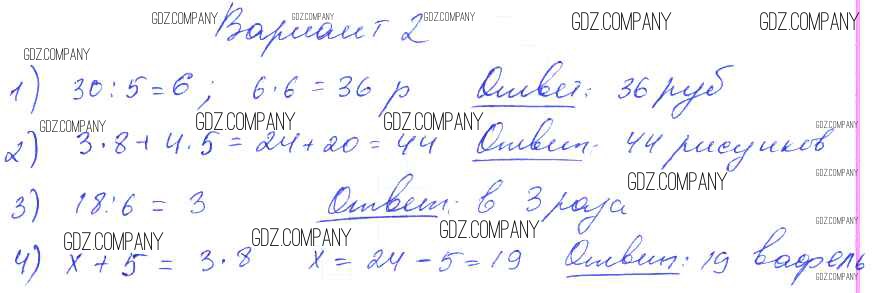 GDZ.COMPANY GDZ.COMPANY GDZ.COMPANY GDZ.COMPANY GDZ.COMPANY
Вариант 2
GDZ.COMPANY
1) 30:5=6; 6·6=36 р Ответ: 36 руб
GDZ.COMPANY GDZ.COMPANY GDZ.COMPANY GDZ.COMPANY
2) 3·8+4·5=24+20=44 Ответ: 44 рисунков
GDZ.COMPANY GDZ.COMPANY
3) 18:6=3 Ответ: в 3 раза
GDZ.COMPANY GDZ.COMPANY GDZ.COMPANY GDZ.COMPANY
4) х+5=3·8 х=24-5=19 Ответ: 19 вафель
GDZ.COMPANY